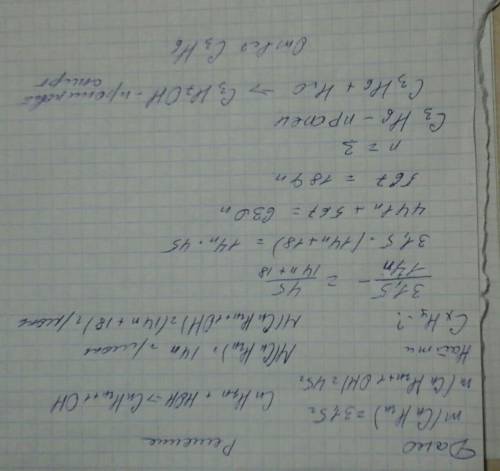 Дано
Решение
m(CnH2n) = 31,5г
m(CnH2n+1OH) = 45г
CnH2n + HOH → CnH2n+1OH
Найти
M(CnH2n) = 14n г/моль
CxHy - ?
M(CnH2n+1OH) = (14n + 18) г/моль
31,5/14n = 45/14n+18
31,5 · (14n+18) = 14n · 45
441n + 567 = 630n
567 = 189n
n = 3
C3H6 - пропен
C3H6 + H2O → C3H7OH - пропиловый спирт
Ответ C3H6